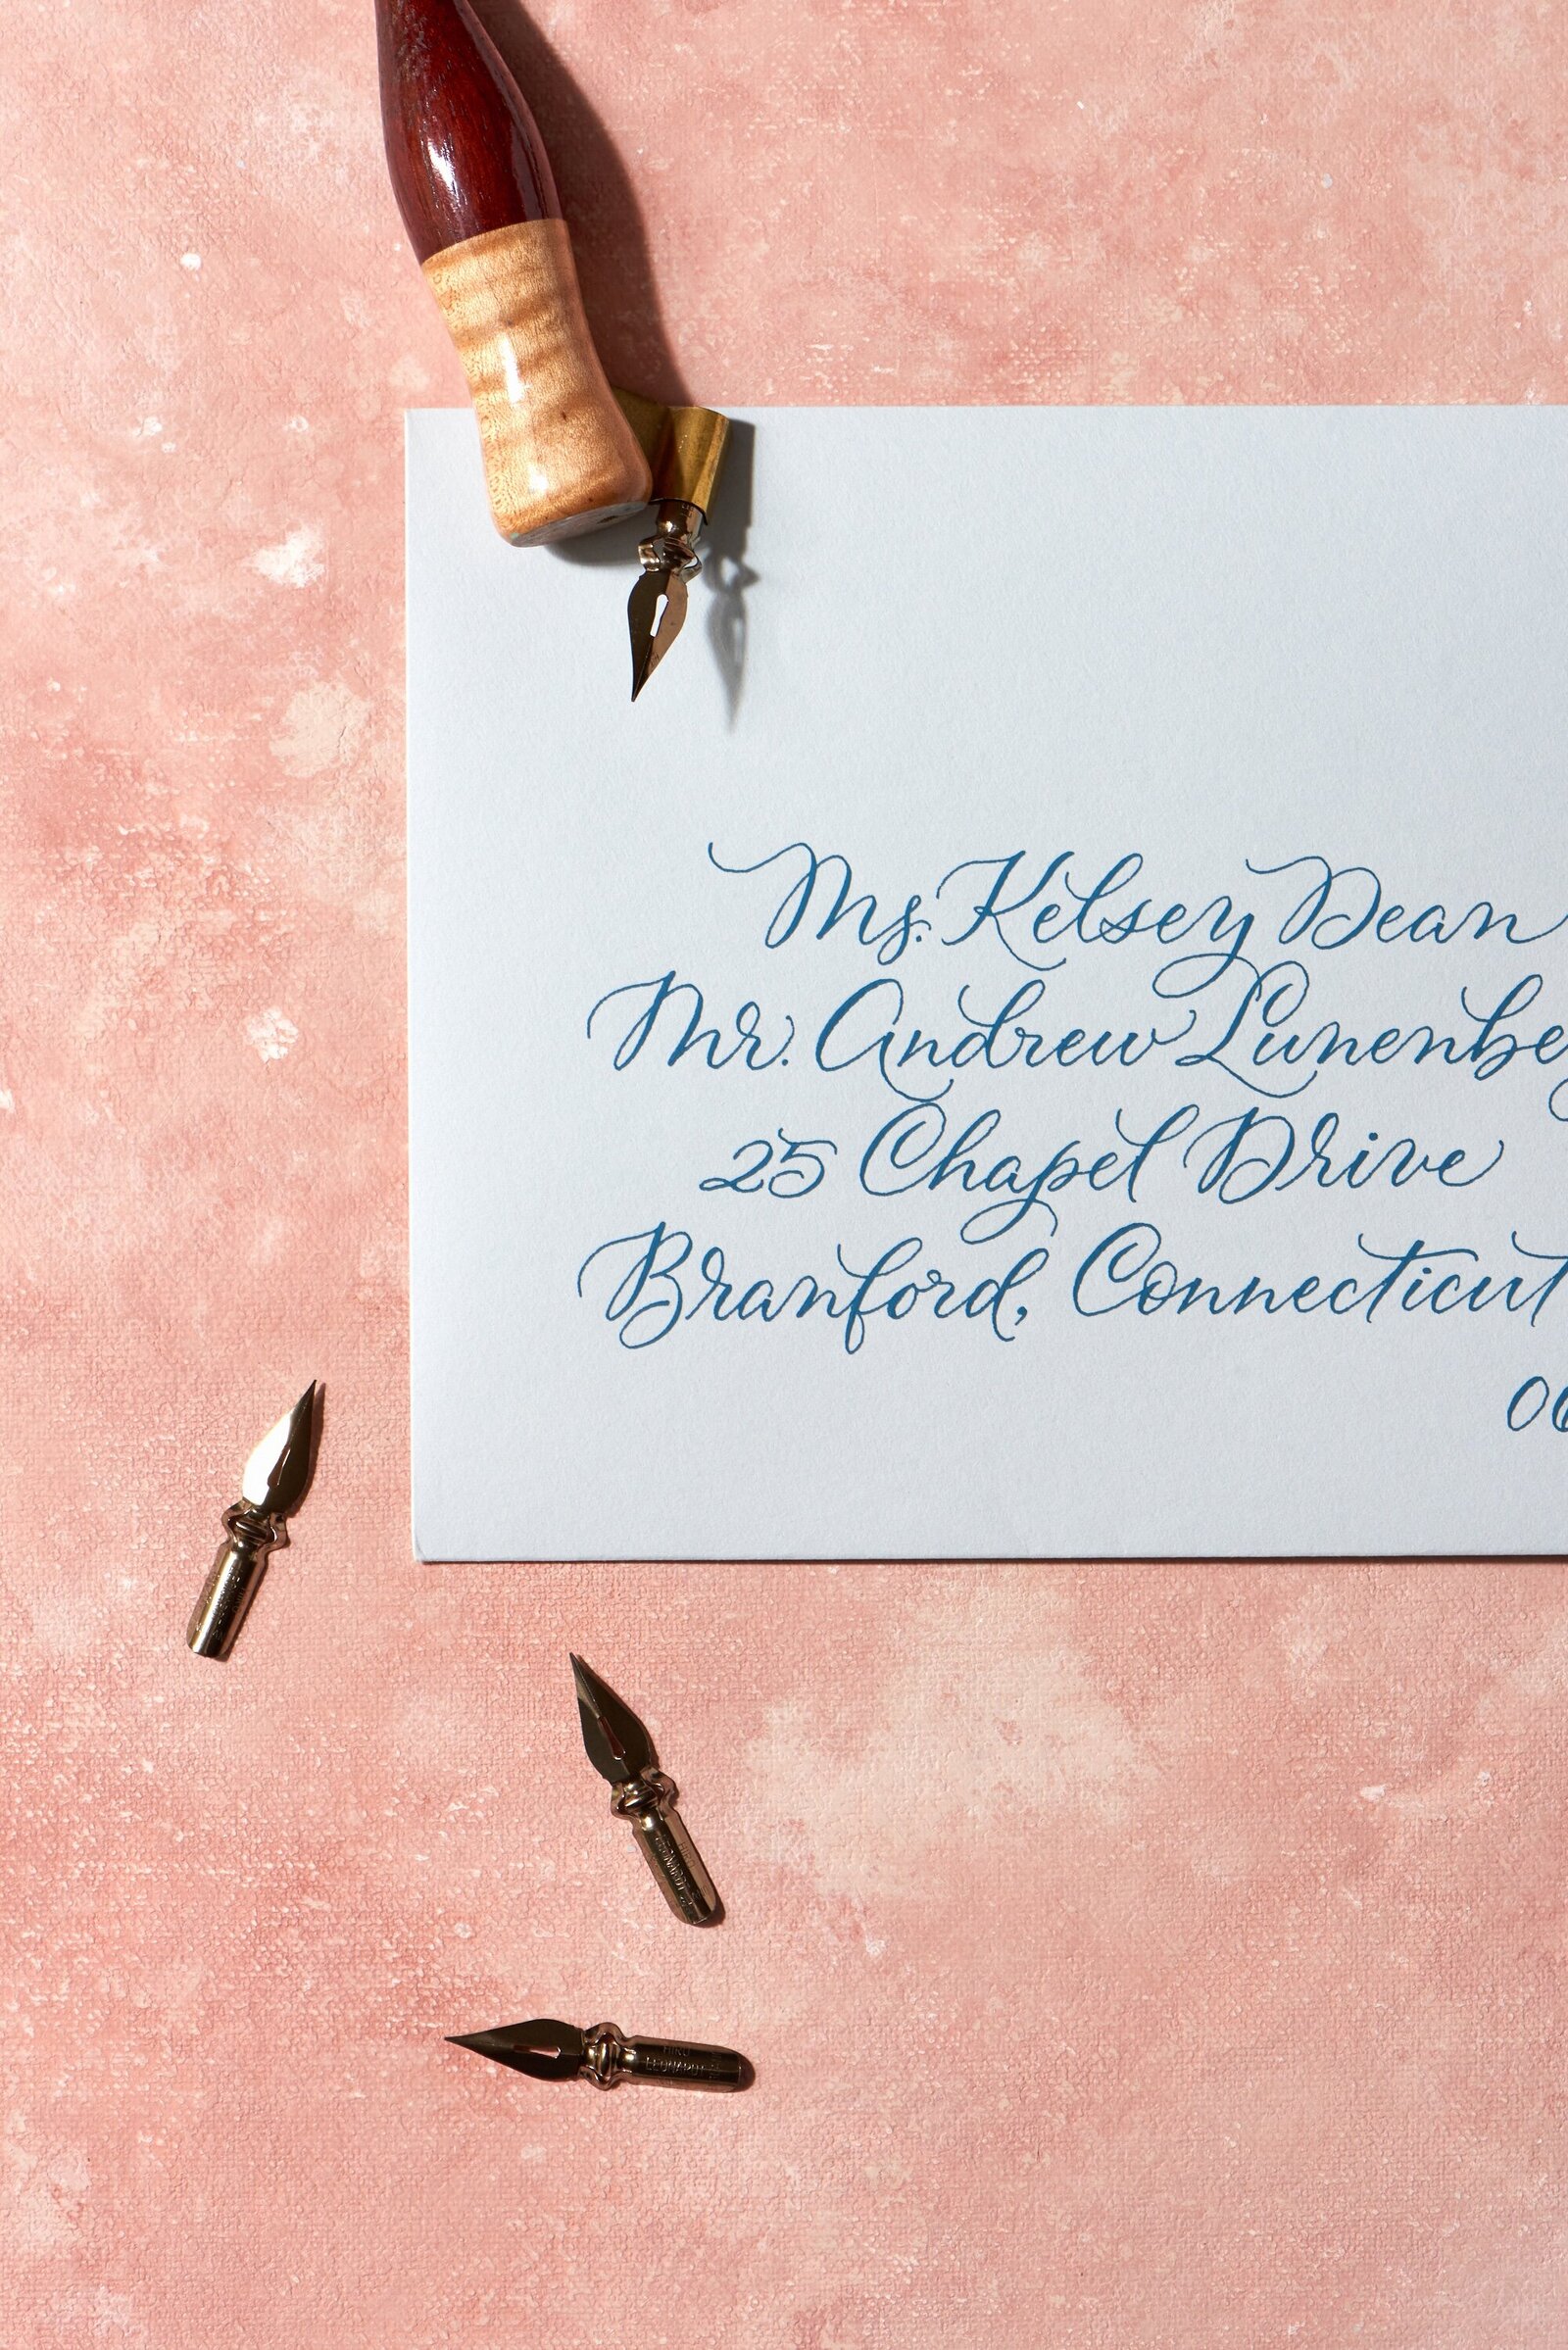 Ms. Kelsey Dean
Mr. Andrew Lunenbe
25 Chapel Drive
Branford, Connecticut
HIRO
LEONARDT